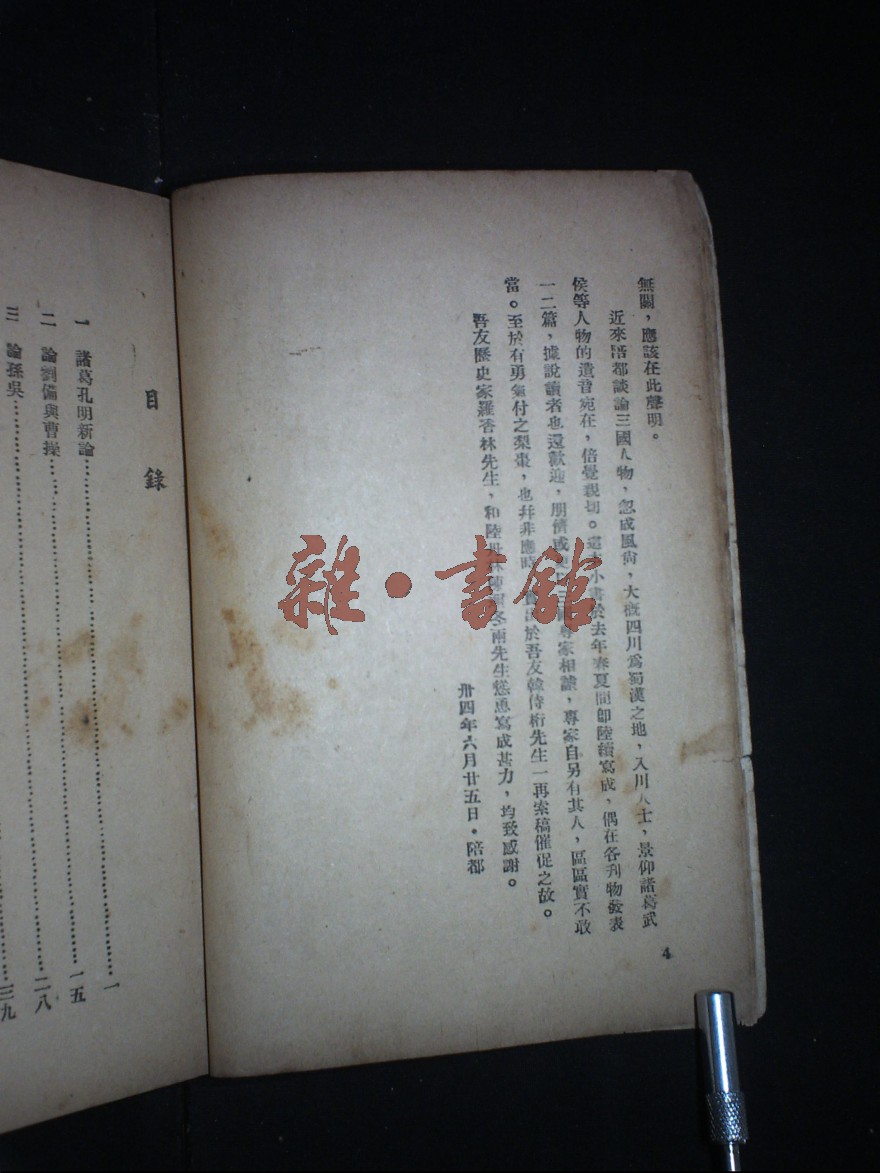 無關，應該在此聲明。
近來陪都談論三國人物，忽成風尚，大概四川爲蜀漢之地，入川人士，景仰諸葛武
侯等人物的遺音宛在，倍覺親切。這本小書於去年春夏間卽陸續寫成，偶在各刊物發表
一二篇，據說讀者也還歡迎，朋儕或 專家相譏，專家自另有其人，區區實不敢
當。至於有勇氣付之梨棗，也幷非應時， 於吾友韓侍桁先生一再索稿催促之故。
吾友歷史家羅香林先生，和陸 冬兩先生慫恿寫成甚力，均致感謝。
卅四年六月廿五日。陪都
4
目錄
一 諸葛孔明新論……一
二 論劉備與曹操……一五
三 論孫吳……二八
三九
雜·書館